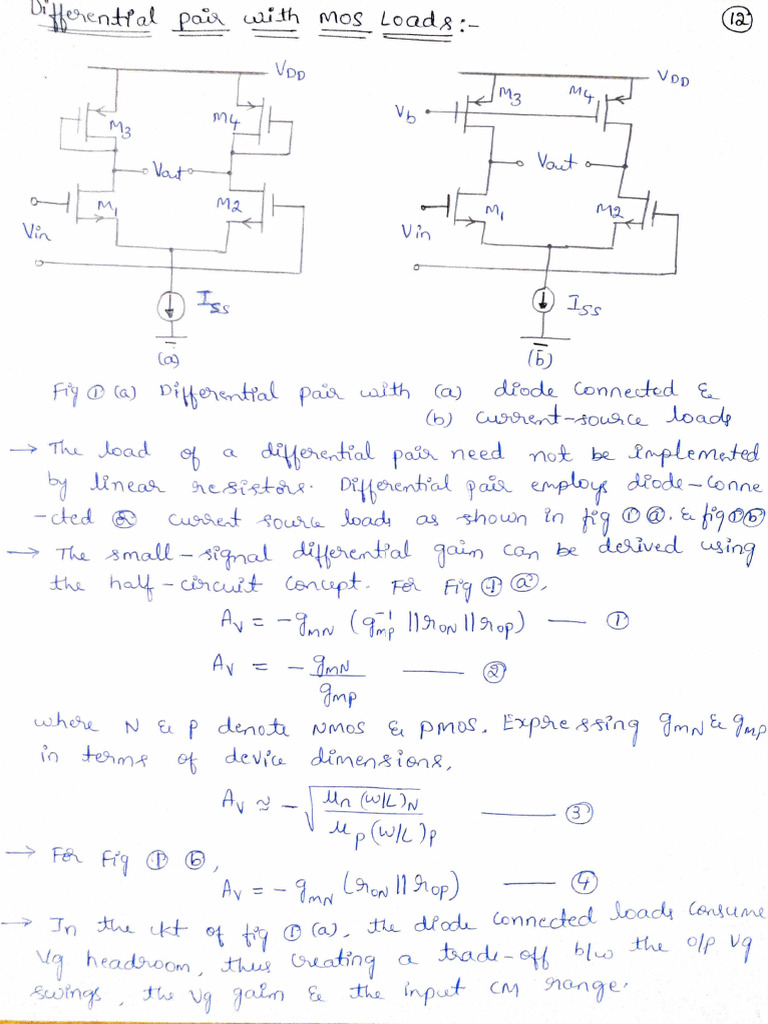 Differential pair with MOS Loads:-
12
VDD
M3
M4
Vout
M1
M2
Vin
ISS
(a)
VDD
M3
M4
Vb
Vout
M1
M2
Vin
ISS
(b)
Fig ① (a) Differential pair with (a) diode connected &
(b) current-source loads
→ The load of a differential pair need not be implemented
by linear resistors. Differential pair employs diode-conne
-cted or current source loads as shown in fig ① ⓐ. & fig ① ⓑ
→ The small-signal differential gain can be derived using
the half-circuit concept. For Fig ① ⓐ,
Av = -gmN (gmp⁻¹ || roN || rop) — ①
Av = - gmN / gmp — ②
where N & P denote NMOS & PMOS. Expressing gmN & gmp
in terms of device dimensions,
Av ≈ - √ μn (W/L)N / μp (W/L)P — ③
→ For Fig ① ⓑ,
Av = - gmN (roN || rop) — ④
→ In the ckt of fig ① (a), the diode connected loads consume
Vg headroom, thus creating a trade-off b/w the o/p vg
swings, the vg gain & the input CM range.